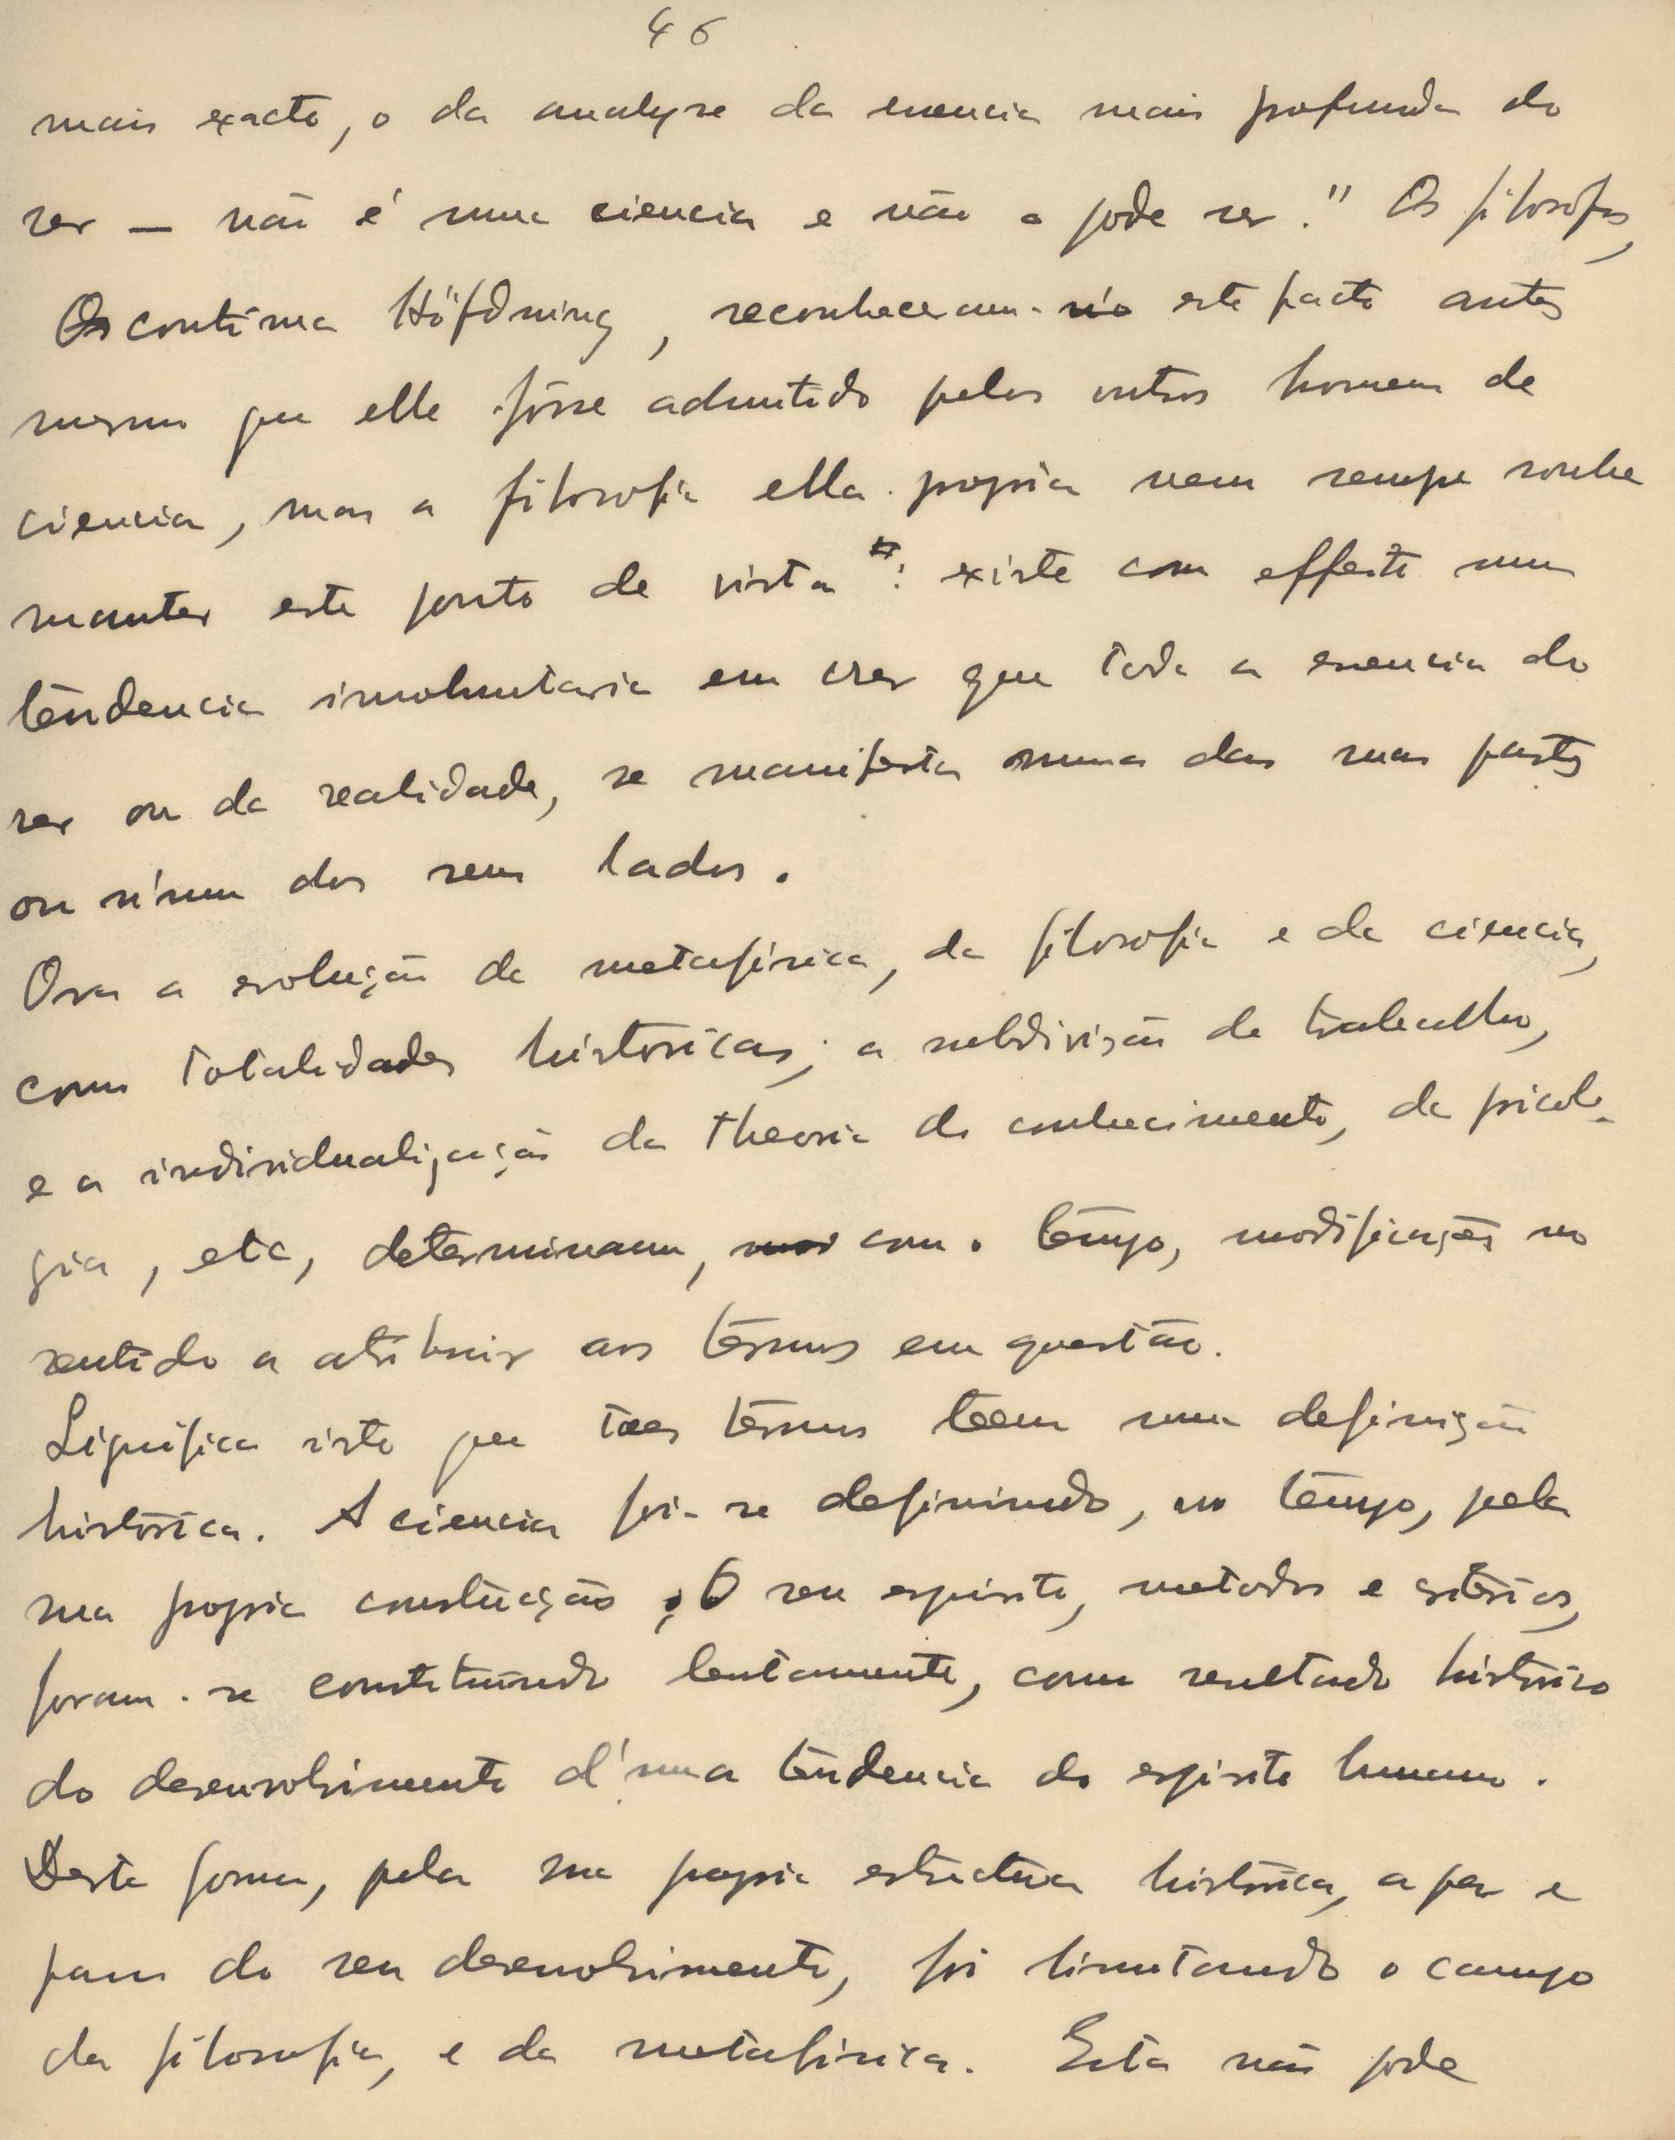 46
mais exacto, o da analyse da essencia mais profunda do
ser — não é uma ciencia e não o pode ser." Os filosofos,
continua Höffdning, reconheceram este facto antes
mesmo que elle fôsse admitido pelos outros homens de
ciencia, mas a filosofia ella propria nem sempre soube
manter este ponto de vista : existe com effeito uma
tendencia involuntaria em crer que toda a essencia do
ser ou da realidade, se manifesta numa das suas partes
ou n'um dos seus lados.
Ora a evolução da metafisica, da filosofia e da ciencia,
como totalidades historicas; a subdivisão de trabalho,
e a individualização da theoria do conhecimento, da psicolo-
gia, etc, determinam, com o tempo, modificações no
sentido a atribuir aos têrmos em questão.
Significa isto que taes têrmos teem uma definição
histórica. A ciencia foi-se definindo, no tempo, pela
sua propria construção ; O seu espirito, metodos e critérios,
foram-se constituindo lentamente, como resultado histórico
do desenvolvimento d'uma tendencia do espirito humano.
Desta forma, pela sua propria estructura histórica, a par e
passo do seu desenvolvimento, foi limitando o campo
da filosofia, e da metafisica. Esta não pode